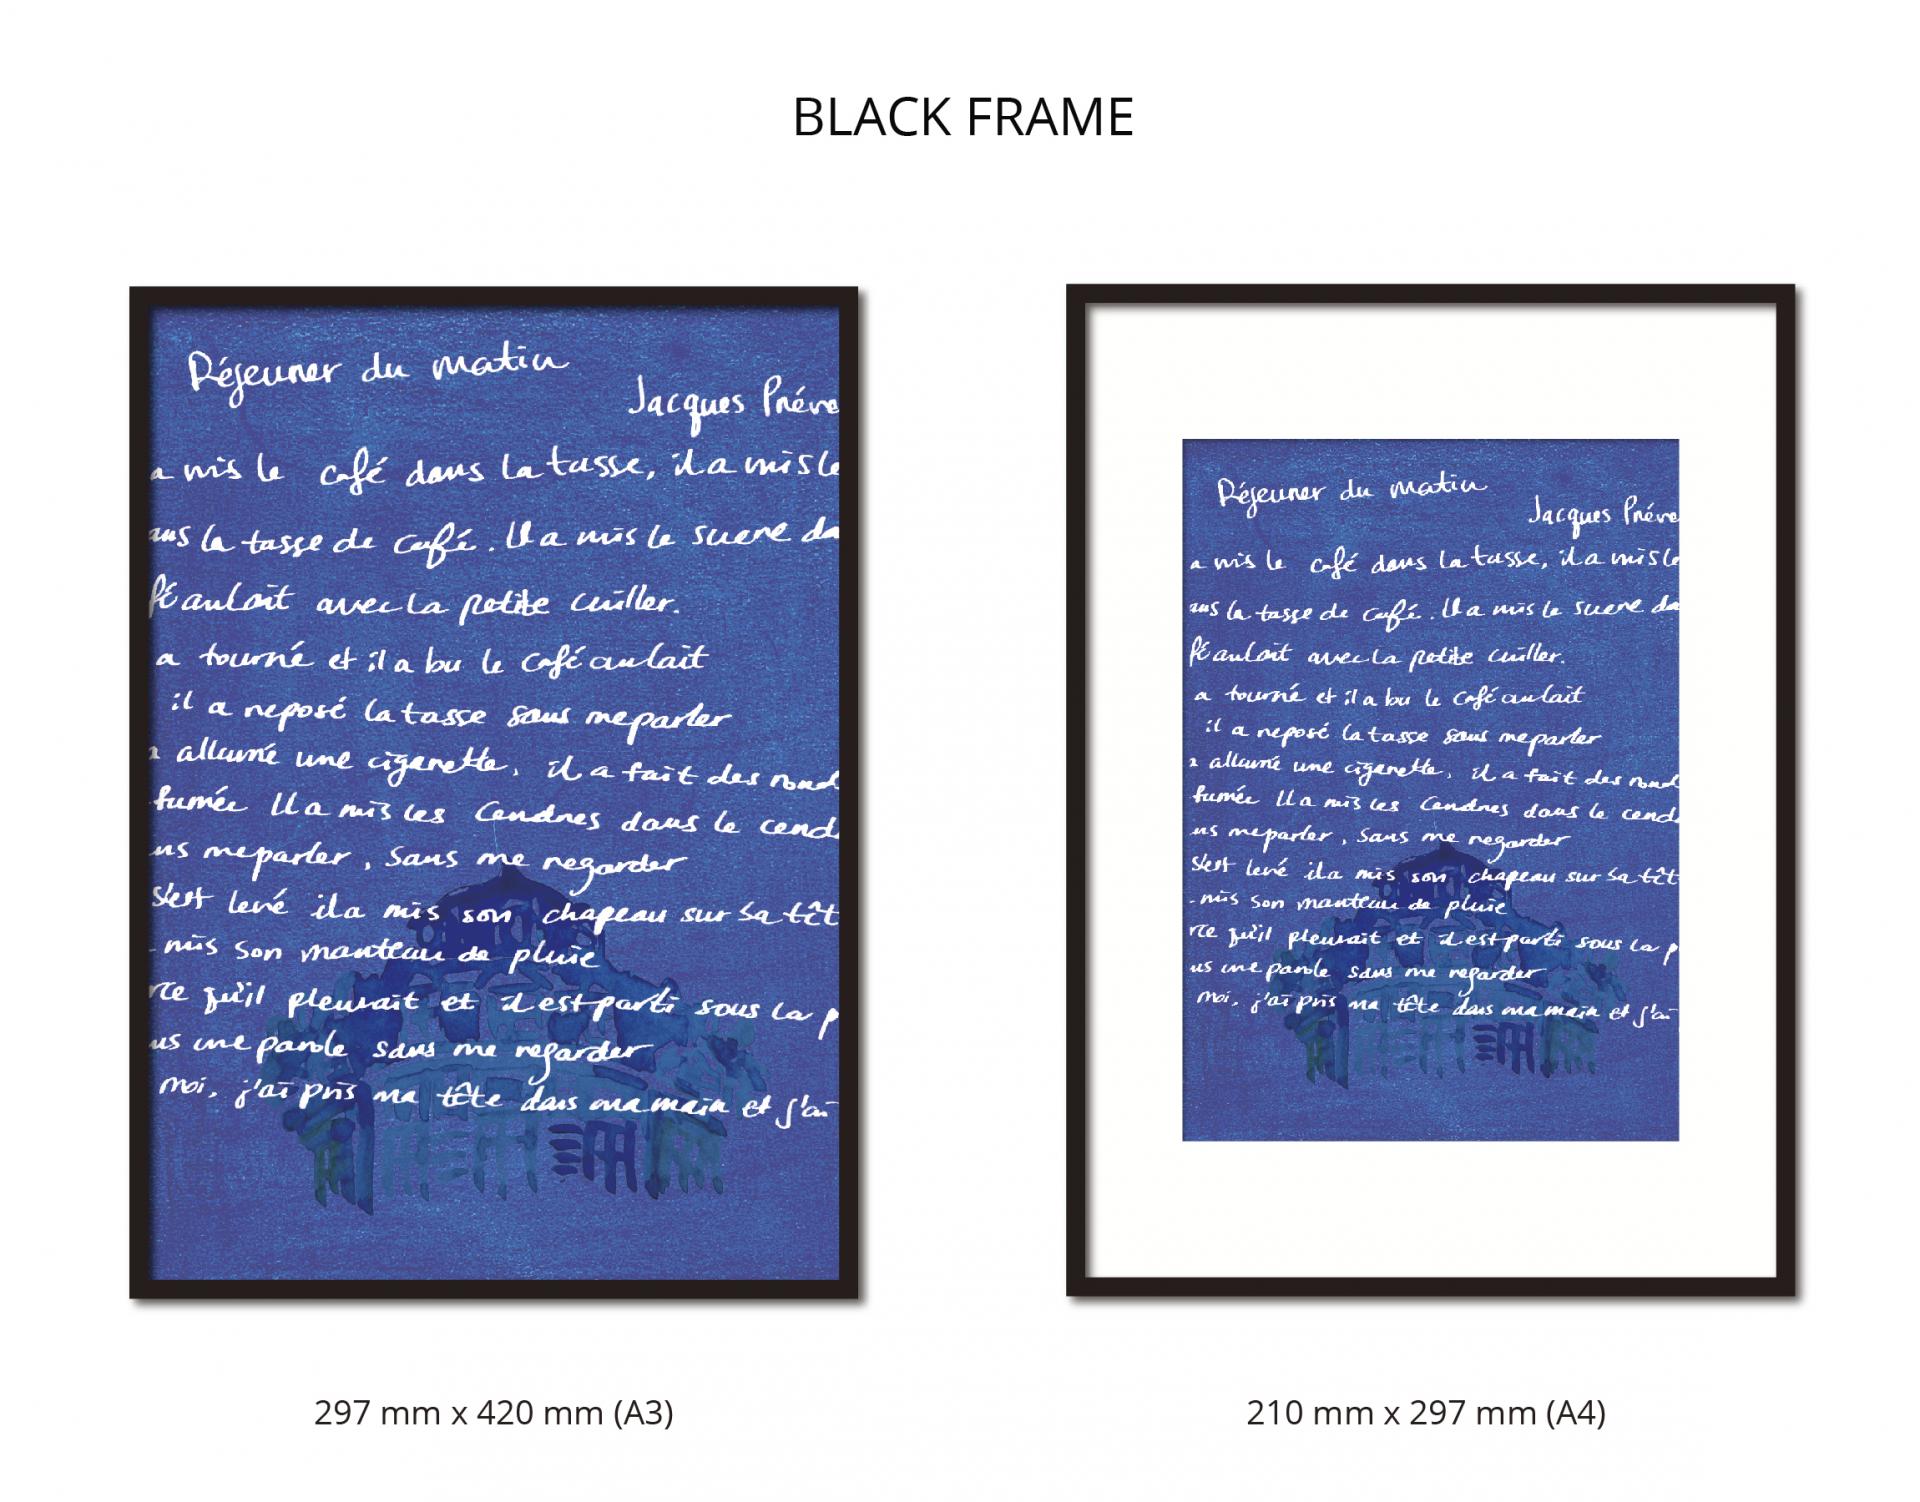 BLACK FRAME
Déjeuner du matin
Jacques Préve
a mis le café dans la tasse, il a mis le
ans la tasse de café. Il a mis le sucre da
fé au lait avec la petite cuiller.
a tourné et il a bu le café au lait
il a reposé la tasse sans me parler
a allumé une cigarette, il a fait des rond
fumée Il a mis les cendres dans le cend
ns me parler, sans me regarder
s'est levé il a mis son chapeau sur sa têt
mis son manteau de pluie
rce qu'il pleuvait et il est parti sous la p
us une parole sans me regarder
moi, j'ai pris ma tête dans ma main et j'ai
297 mm x 420 mm (A3)
Déjeuner du matin
Jacques Préve
a mis le café dans la tasse, il a mis le
ans la tasse de café. Il a mis le sucre da
fé au lait avec la petite cuiller.
a tourné et il a bu le café au lait
il a reposé la tasse sans me parler
a allumé une cigarette, il a fait des rond
fumée Il a mis les cendres dans le cend
ns me parler, sans me regarder
s'est levé il a mis son chapeau sur sa têt
mis son manteau de pluie
rce qu'il pleuvait et il est parti sous la p
us une parole sans me regarder
moi, j'ai pris ma tête dans ma main et j'ai
210 mm x 297 mm (A4)